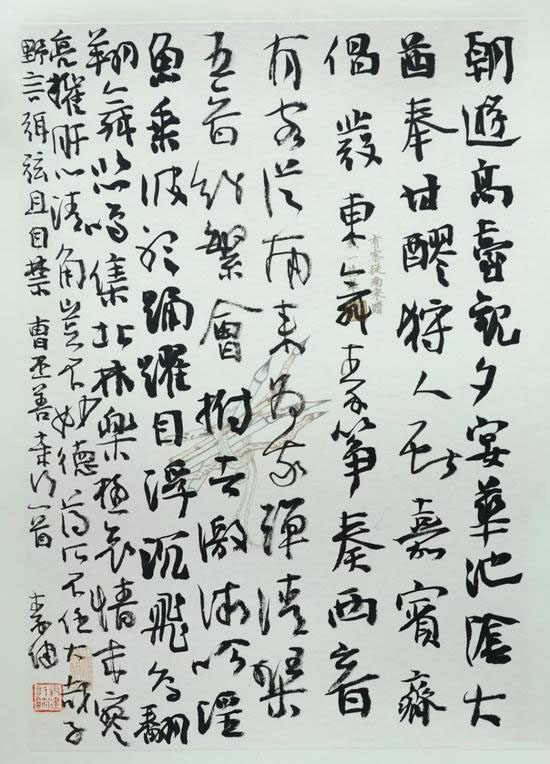 朝遊高臺觀夕宴華池陰大
酋奉甘醪狩人獻嘉賓齊
倡發東舞秦箏奏西音
有客從南來為我彈清琴
五音紛繁會拊者激微吟淫
魚乘波於踊躍自浮沉飛鳥翻
翔舞悲鳴集北林樂極哀情來寥
亮摧肝心清角豈不妙德薄所不任大哉子
野言弭弦且自禁 曹丕善哉行一首
有客從南來贈